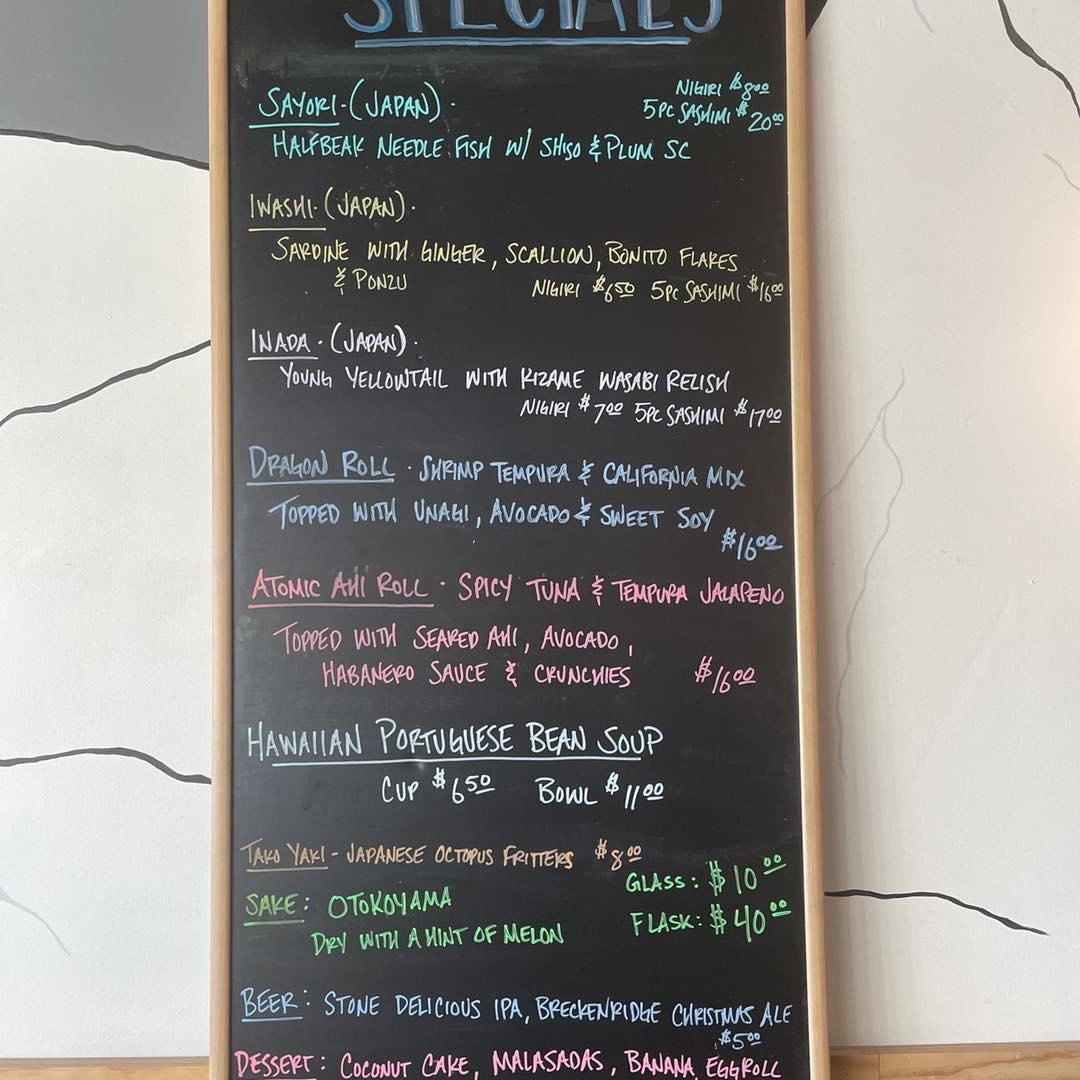 SPECIALS
SAYORI · (JAPAN) · NIGIRI $8.00
5PC SASHIMI $20.00
HALFBEAK NEEDLE FISH W/ SHISO & PLUM SC
IWASHI · (JAPAN) ·
SARDINE WITH GINGER, SCALLION, BONITO FLAKES
& PONZU NIGIRI $6.50 5PC SASHIMI $16.00
INADA · (JAPAN) ·
YOUNG YELLOWTAIL WITH KIZAME WASABI RELISH
NIGIRI $7.00 5PC SASHIMI $17.00
DRAGON ROLL · SHRIMP TEMPURA & CALIFORNIA MIX
TOPPED WITH UNAGI, AVOCADO & SWEET SOY
$16.00
ATOMIC AHI ROLL · SPICY TUNA & TEMPURA JALAPENO
TOPPED WITH SEARED AHI, AVOCADO,
HABANERO SAUCE & CRUNCHIES $16.00
HAWAIIAN PORTUGUESE BEAN SOUP
CUP $6.50 BOWL $11.00
TAKO YAKI - JAPANESE OCTOPUS FRITTERS $8.00
SAKE: OTOKOYAMA GLASS: $10.00
DRY WITH A HINT OF MELON FLASK: $40.00
BEER: STONE DELICIOUS IPA, BRECKENRIDGE CHRISTMAS ALE
$5.00
DESSERT: COCONUT CAKE, MALASADAS, BANANA EGGROLL